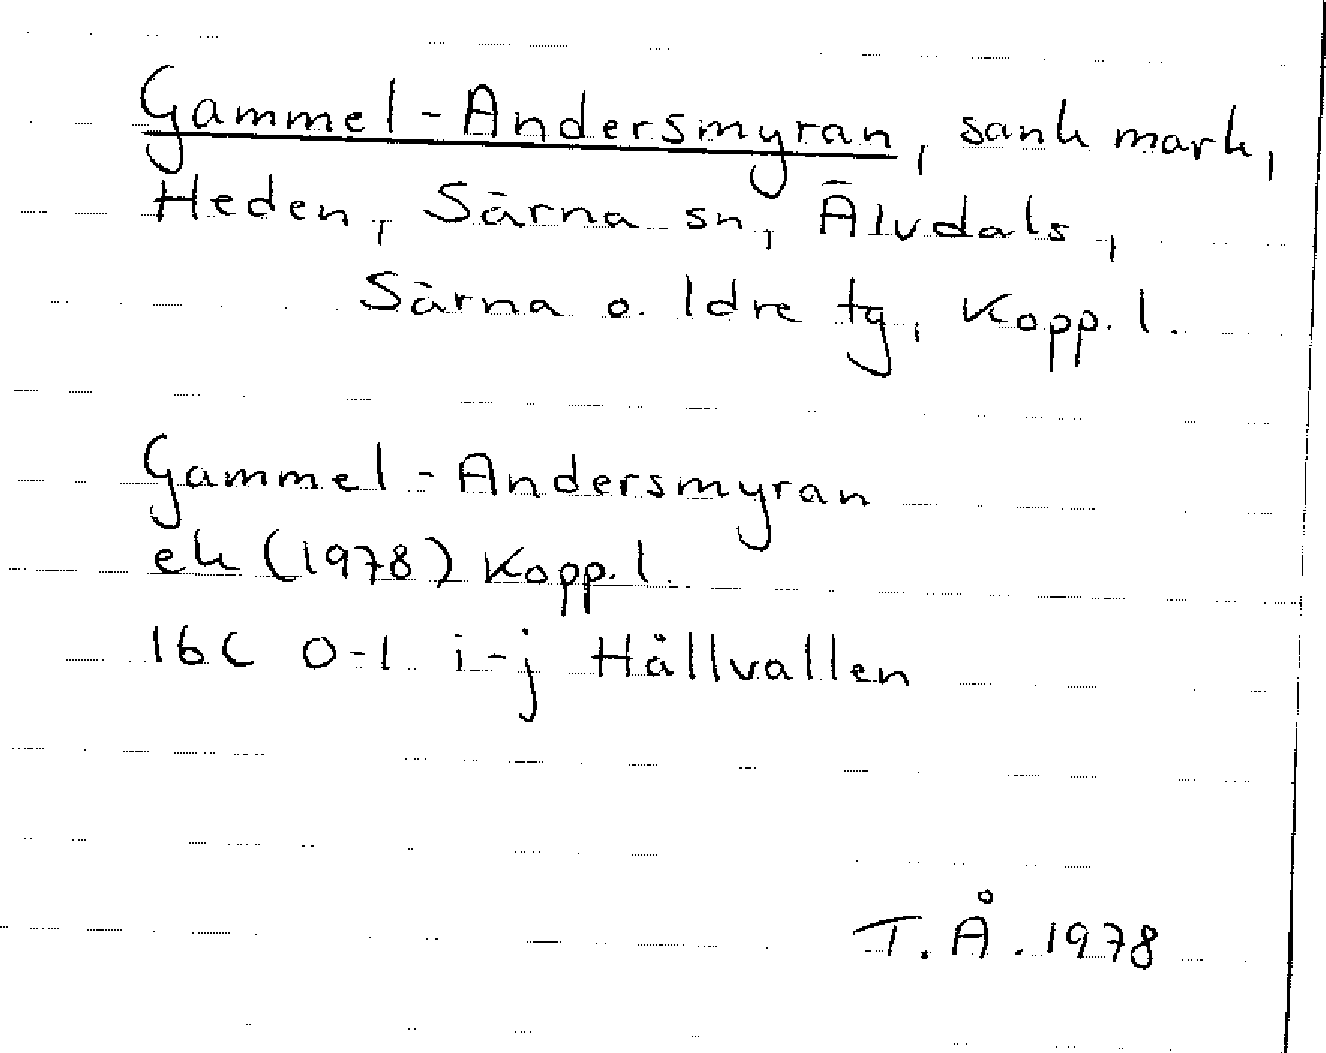 Gammel-Andersmyran, sank mark,
Heden, Särna sn, Älvdals,
Särna o. Idre tg, Kopp. l.
Gammel-Andersmyran
ek (1978) Kopp. l.
16C 0-1 i-j Hållvallen
T. Å. 1978